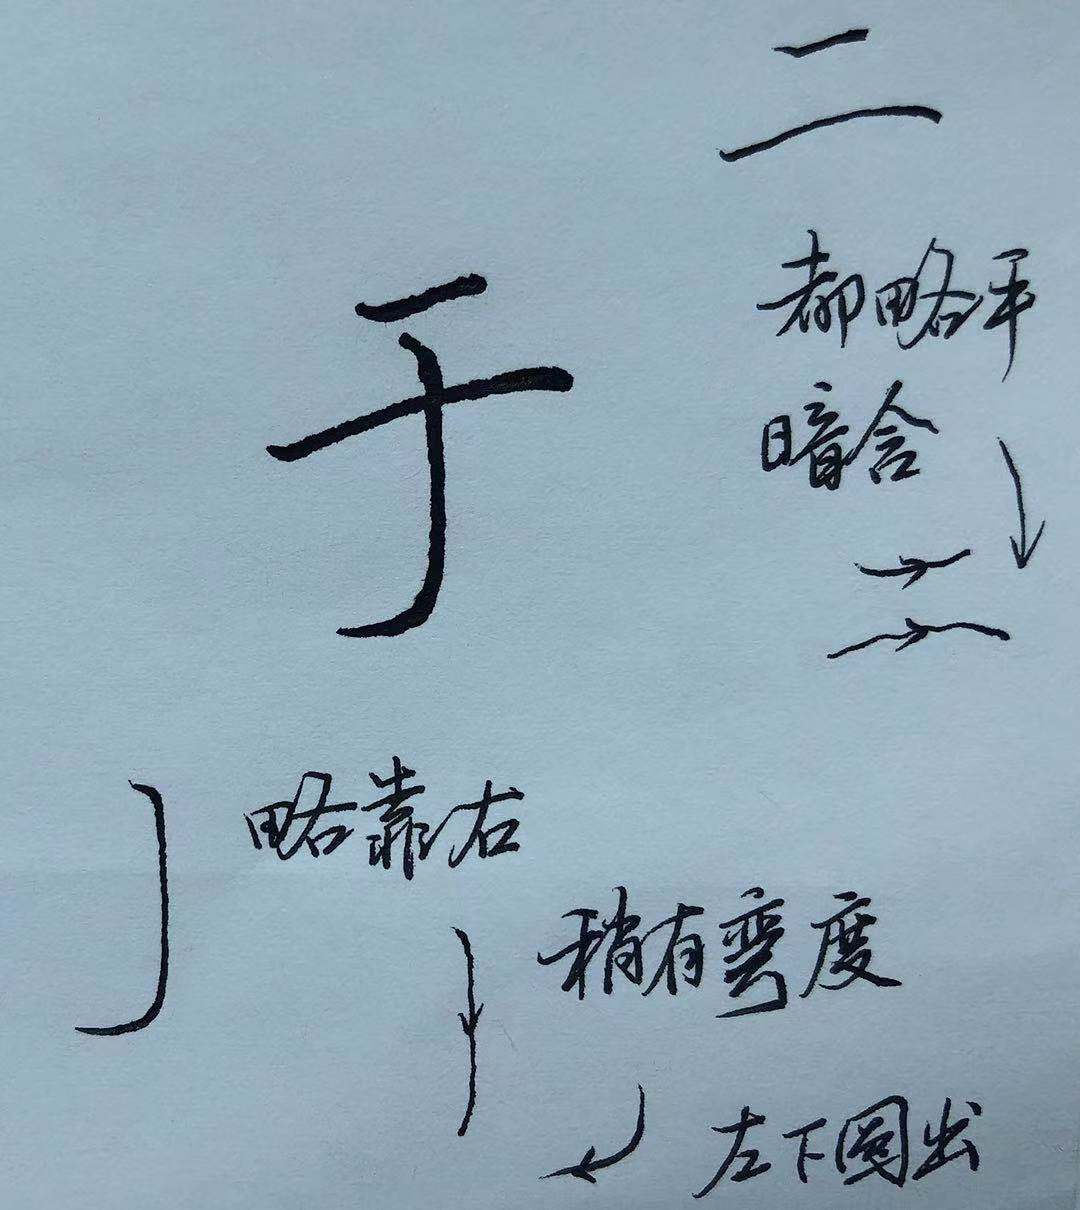 二
于
都略平
暗含
略靠右
稍有弯度
左下圆出